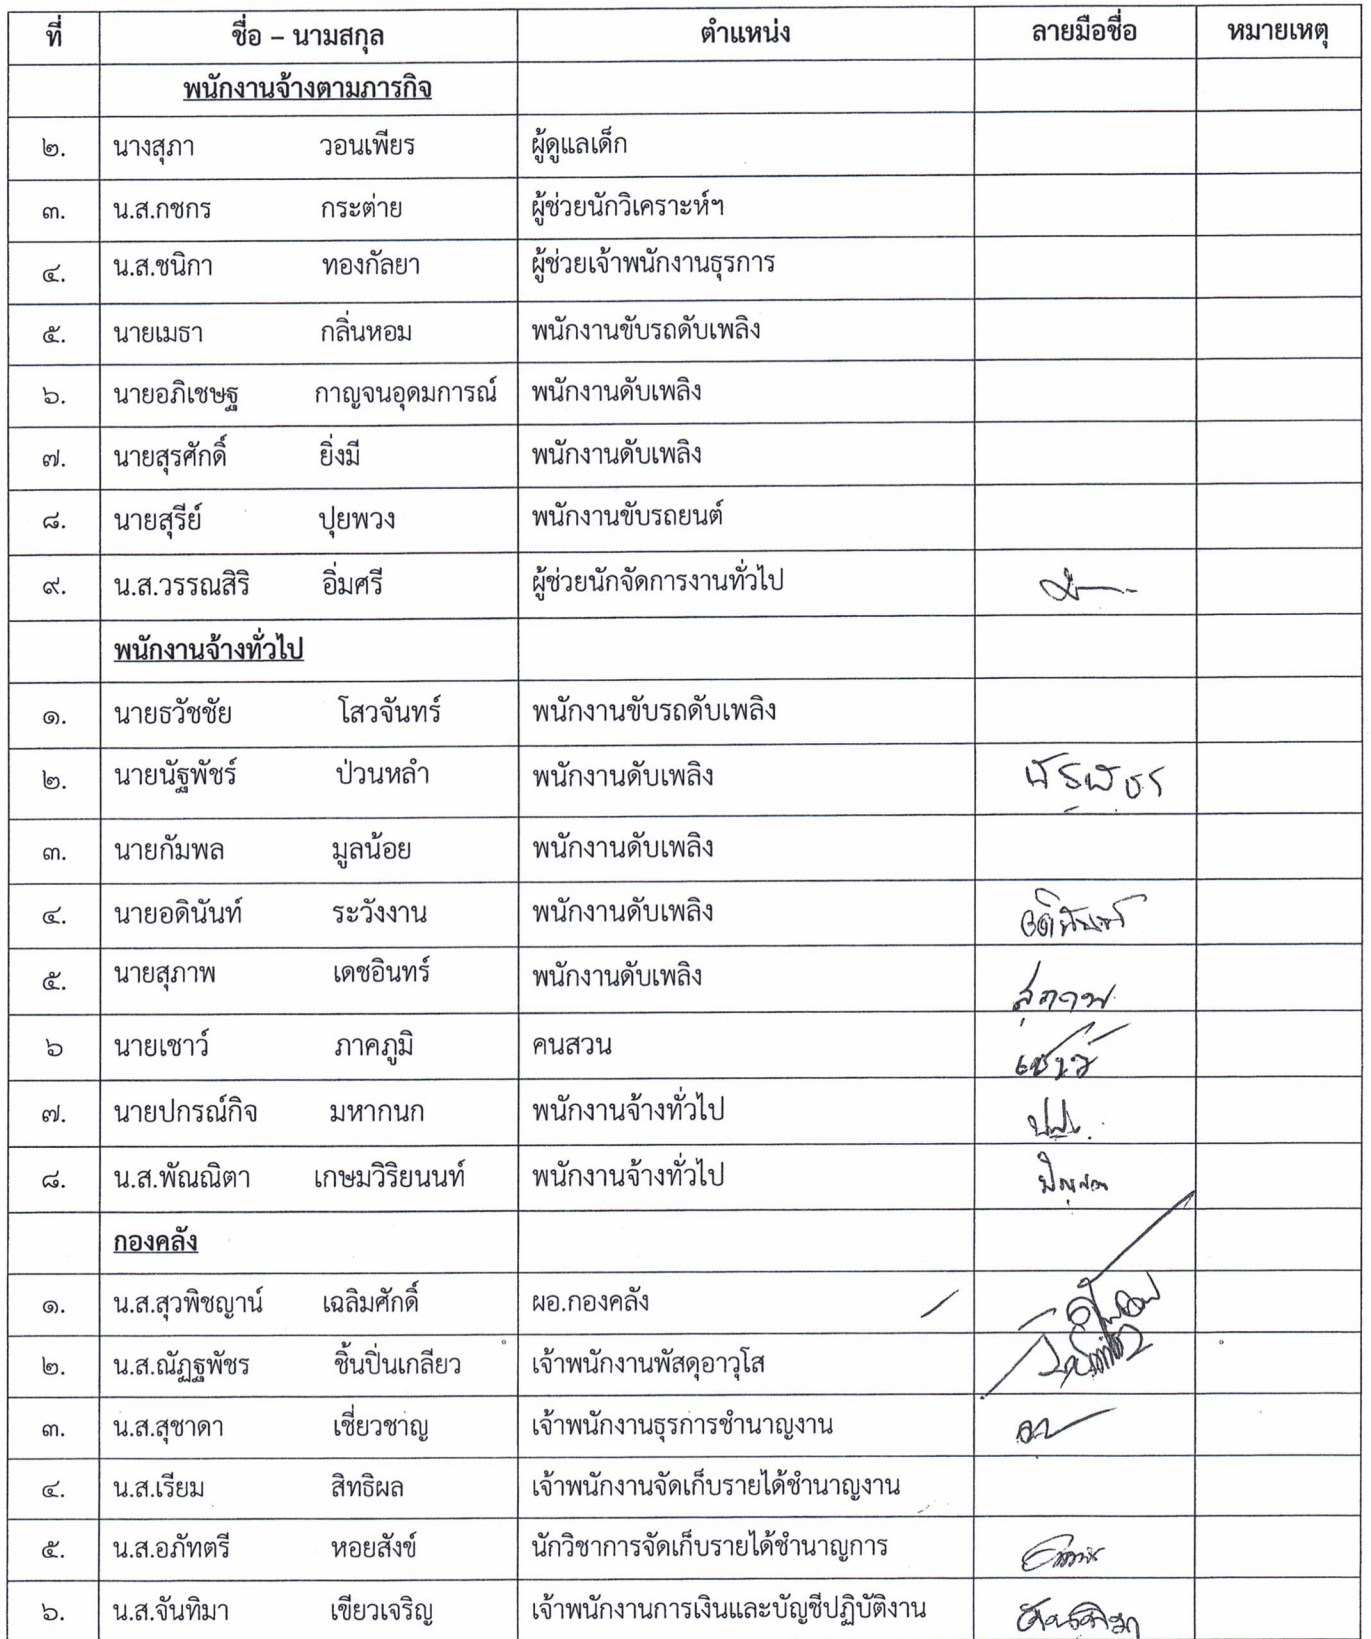 ที่ ชื่อ – นามสกุล ตำแหน่ง ลายมือชื่อ หมายเหตุ
พนักงานจ้างตามภารกิจ
๒. นางสุภา วอนเพียร ผู้ดูแลเด็ก
๓. น.ส.กชกร กระต่าย ผู้ช่วยนักวิเคราะห์ฯ
๔. น.ส.ชนิกา ทองกัลยา ผู้ช่วยเจ้าพนักงานธุรการ
๕. นายเมธา กลิ่นหอม พนักงานขับรถดับเพลิง
๖. นายอภิเชษฐ กาญจนอุดมการณ์ พนักงานดับเพลิง
๗. นายสุรศักดิ์ ยิ่งมี พนักงานดับเพลิง
๘. นายสุรีย์ ปุยพวง พนักงานขับรถยนต์
๙. น.ส.วรรณสิริ อิ่มศรี ผู้ช่วยนักจัดการงานทั่วไป
พนักงานจ้างทั่วไป
๑. นายธวัชชัย โสวจันทร์ พนักงานขับรถดับเพลิง
๒. นายนัฐพัชร์ ป่วนหลำ พนักงานดับเพลิง
๓. นายกัมพล มูลน้อย พนักงานดับเพลิง
๔. นายอดินันท์ ระวังงาน พนักงานดับเพลิง
๕. นายสุภาพ เดชอินทร์ พนักงานดับเพลิง สุภาพ
๖ นายเชาว์ ภาคภูมิ คนสวน เชาว์
๗. นายปกรณ์กิจ มหากนก พนักงานจ้างทั่วไป
๘. น.ส.พัณณิตา เกษมวิริยนนท์ พนักงานจ้างทั่วไป
กองคลัง
๑. น.ส.สุวพิชญาน์ เฉลิมศักดิ์ ผอ.กองคลัง
๒. น.ส.ณัฏฐพัชร ชิ้นปิ่นเกลียว เจ้าพนักงานพัสดุอาวุโส
๓. น.ส.สุชาดา เชี่ยวชาญ เจ้าพนักงานธุรการชำนาญงาน
๔. น.ส.เรียม สิทธิผล เจ้าพนักงานจัดเก็บรายได้ชำนาญงาน
๕. น.ส.อภัทตรี หอยสังข์ นักวิชาการจัดเก็บรายได้ชำนาญการ
๖. น.ส.จันทิมา เขียวเจริญ เจ้าพนักงานการเงินและบัญชีปฏิบัติงาน